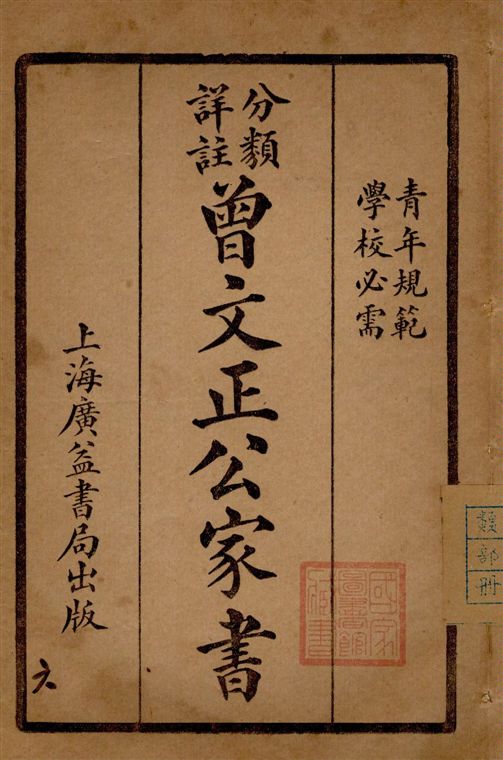 青年規範
學校必需
分類
詳註
曾文正公家書
上海廣益書局出版
六
國家
圖書館
藏書
類
部
冊